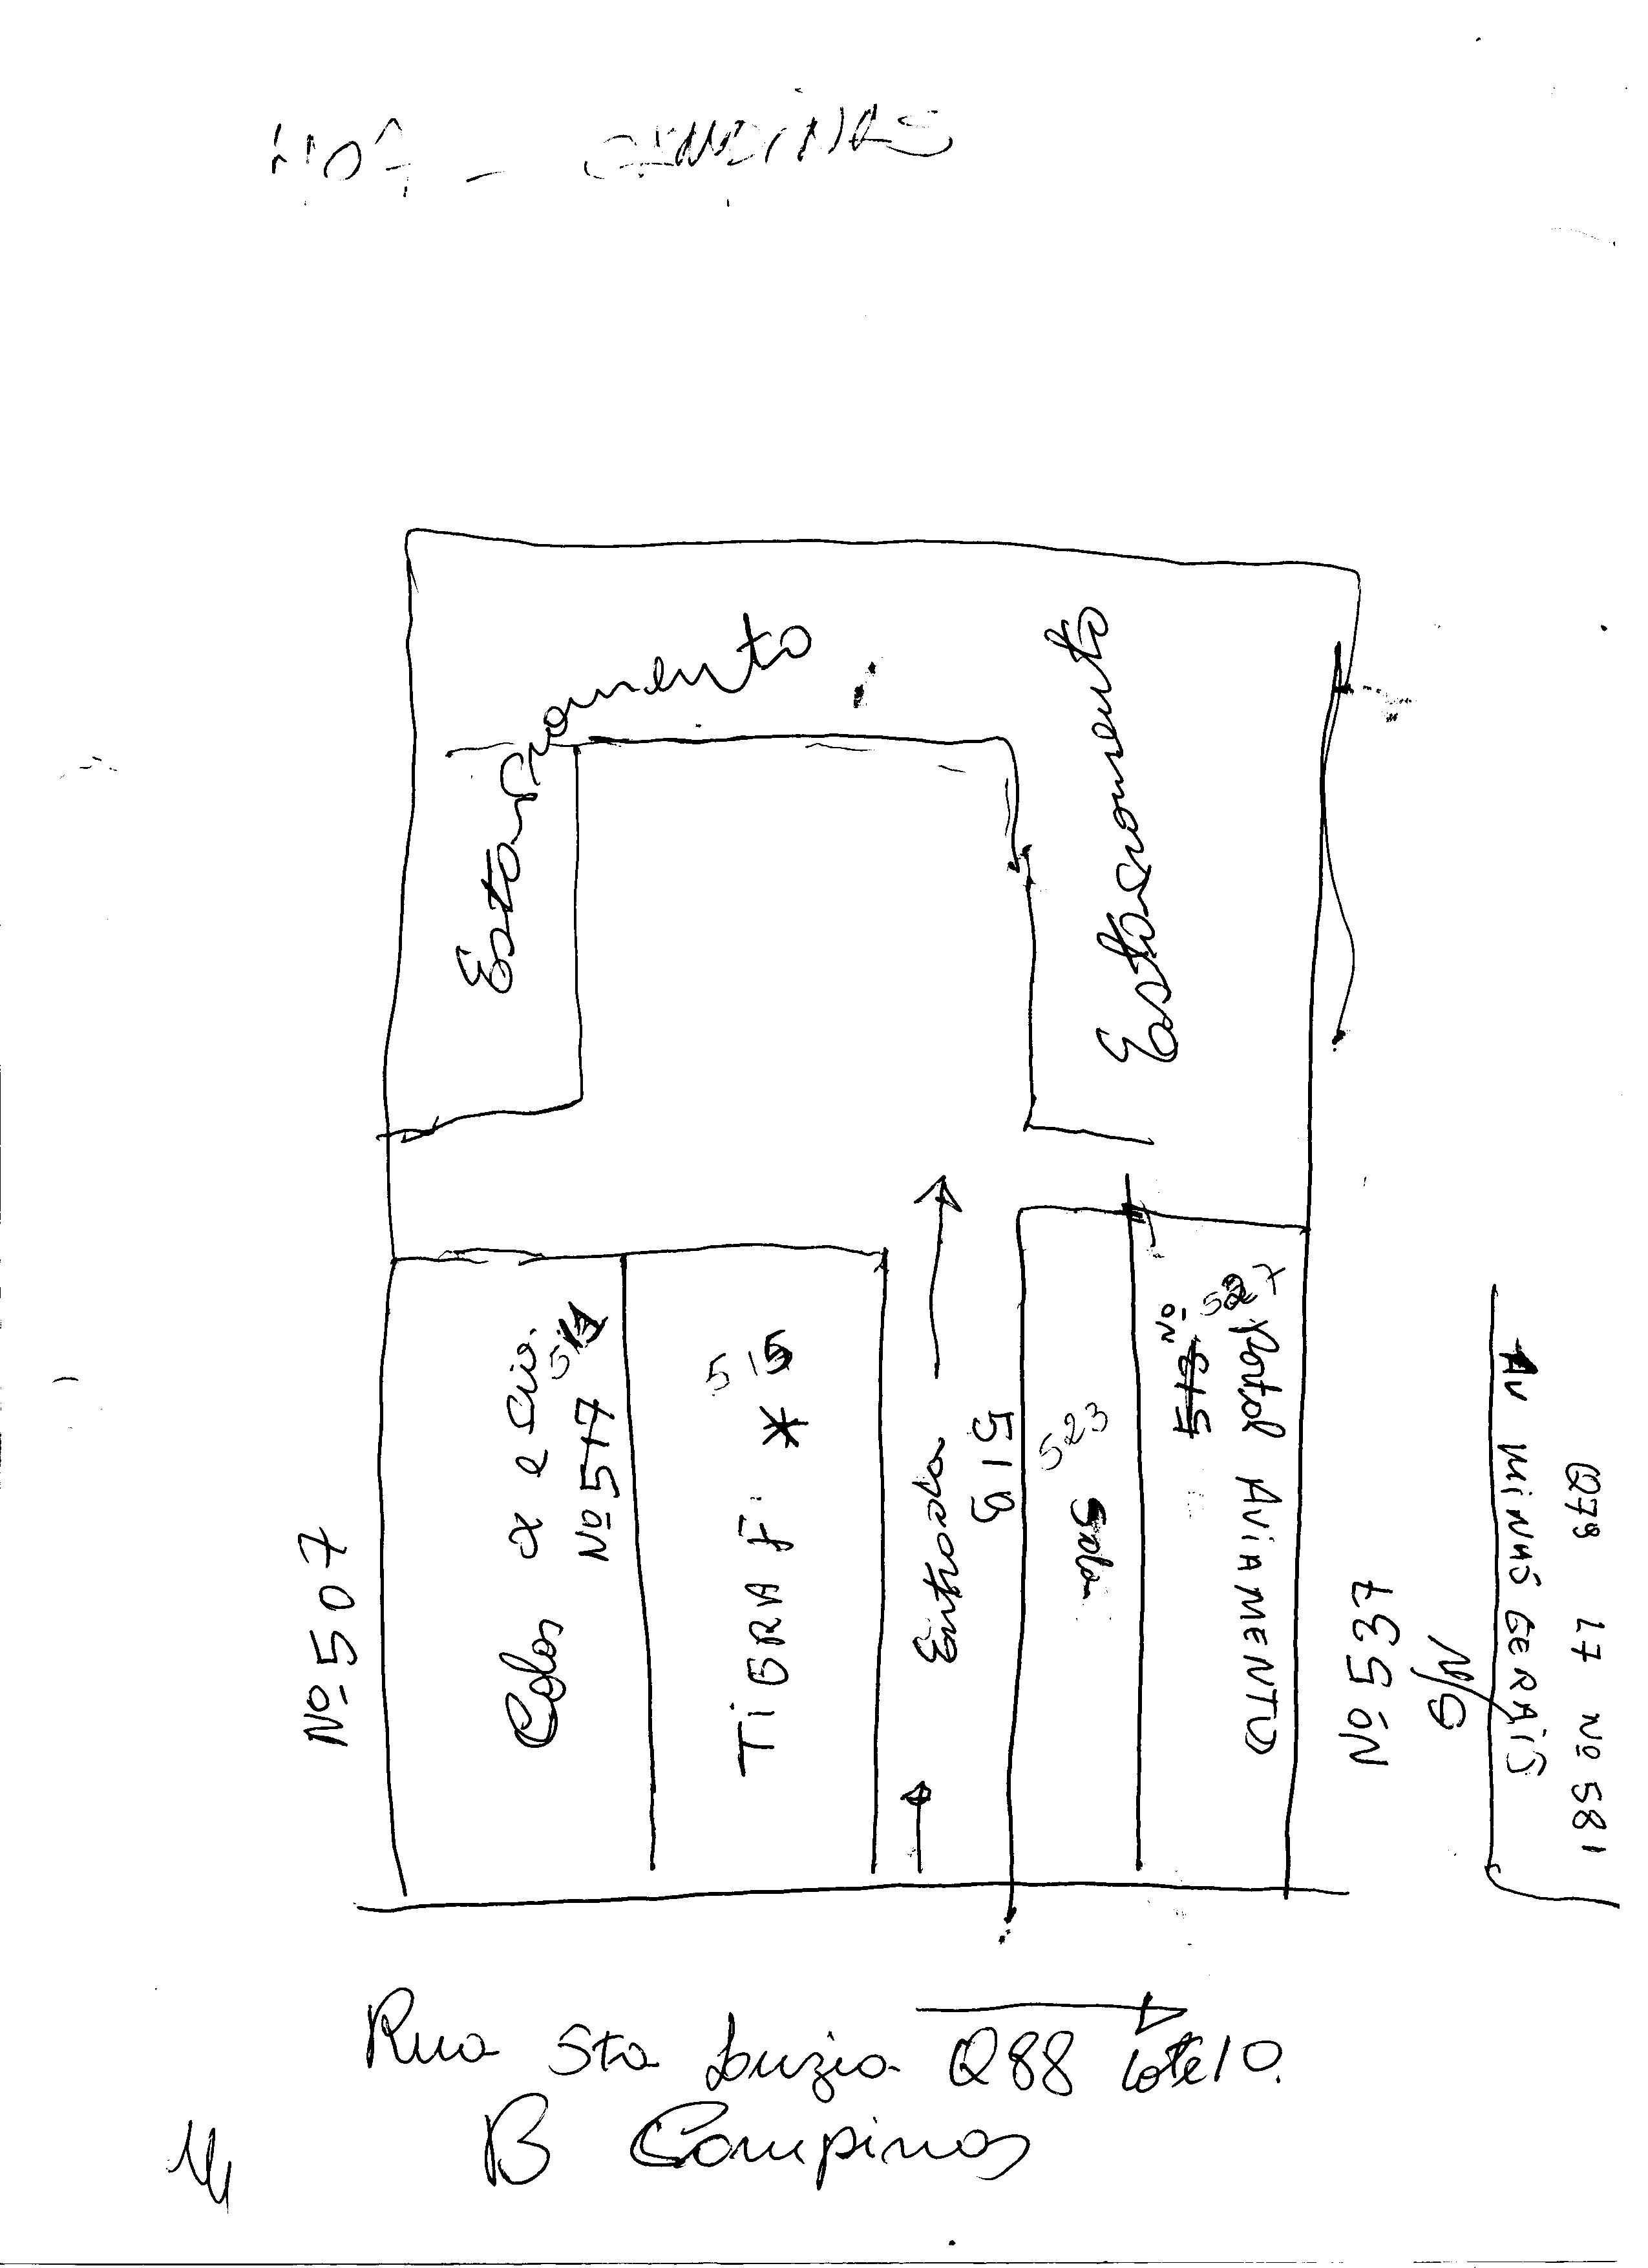 Estacionamento
Estacionamento
Nº 507
Colos & e Cia.
Nº 517
TiGRAF *
515
Entrada
519
523
Sala
Nº
513
527
Portal AViAMENTO
Nº 537
AV MiNAS GERAIS
Q79 L7 Nº 581
Rua Sta Luzia Q88 Lote 10.
B Campinas